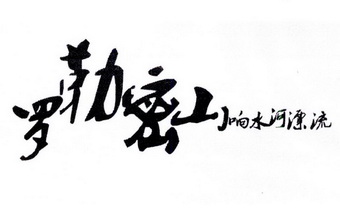 罗勒密山响水河漂流